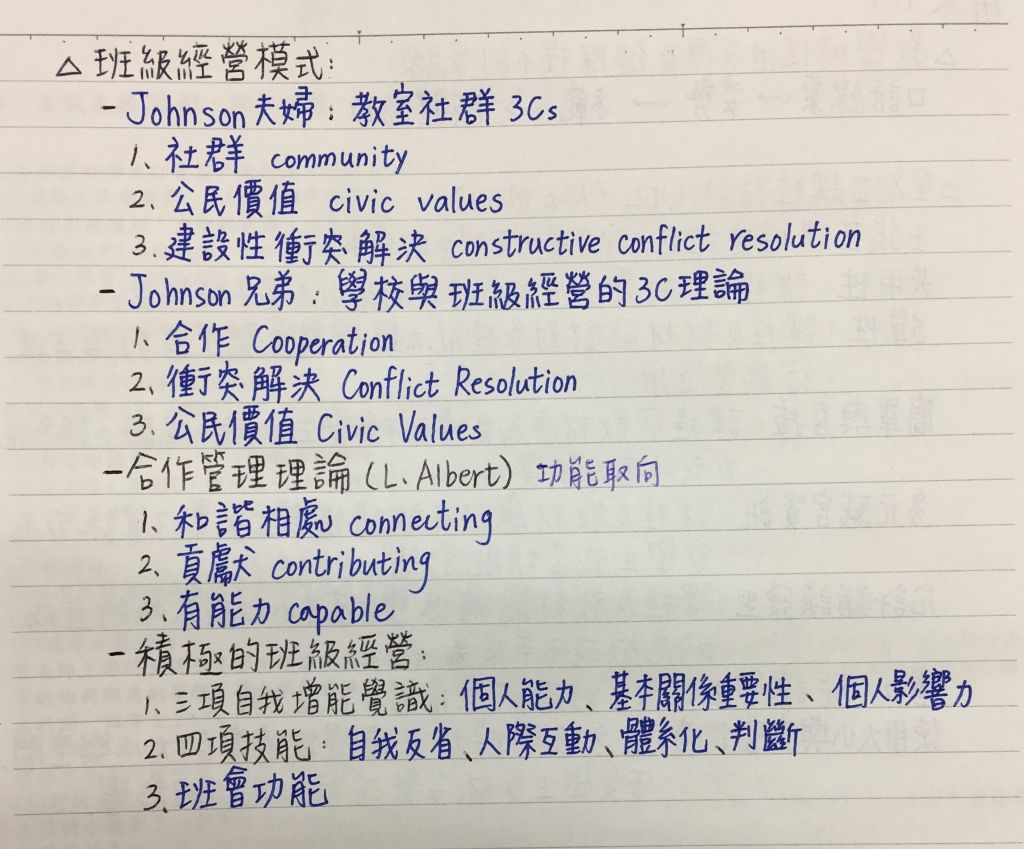 △ 班級經營模式:
- Johnson夫婦: 教室社群 3Cs
1、社群 community
2、公民價值 civic values
3、建設性衝突解決 constructive conflict resolution
- Johnson兄弟: 學校與班級經營的3C理論
1、合作 Cooperation
2、衝突解決 Conflict Resolution
3、公民價值 Civic Values
- 合作管理理論 (L. Albert) 功能取向
1、和諧相處 connecting
2、貢獻 contributing
3、有能力 capable
- 積極的班級經營:
1、三項自我增能覺識: 個人能力、基本關係重要性、個人影響力
2、四項技能: 自我反省、人際互動、體系化、判斷
3、班會功能